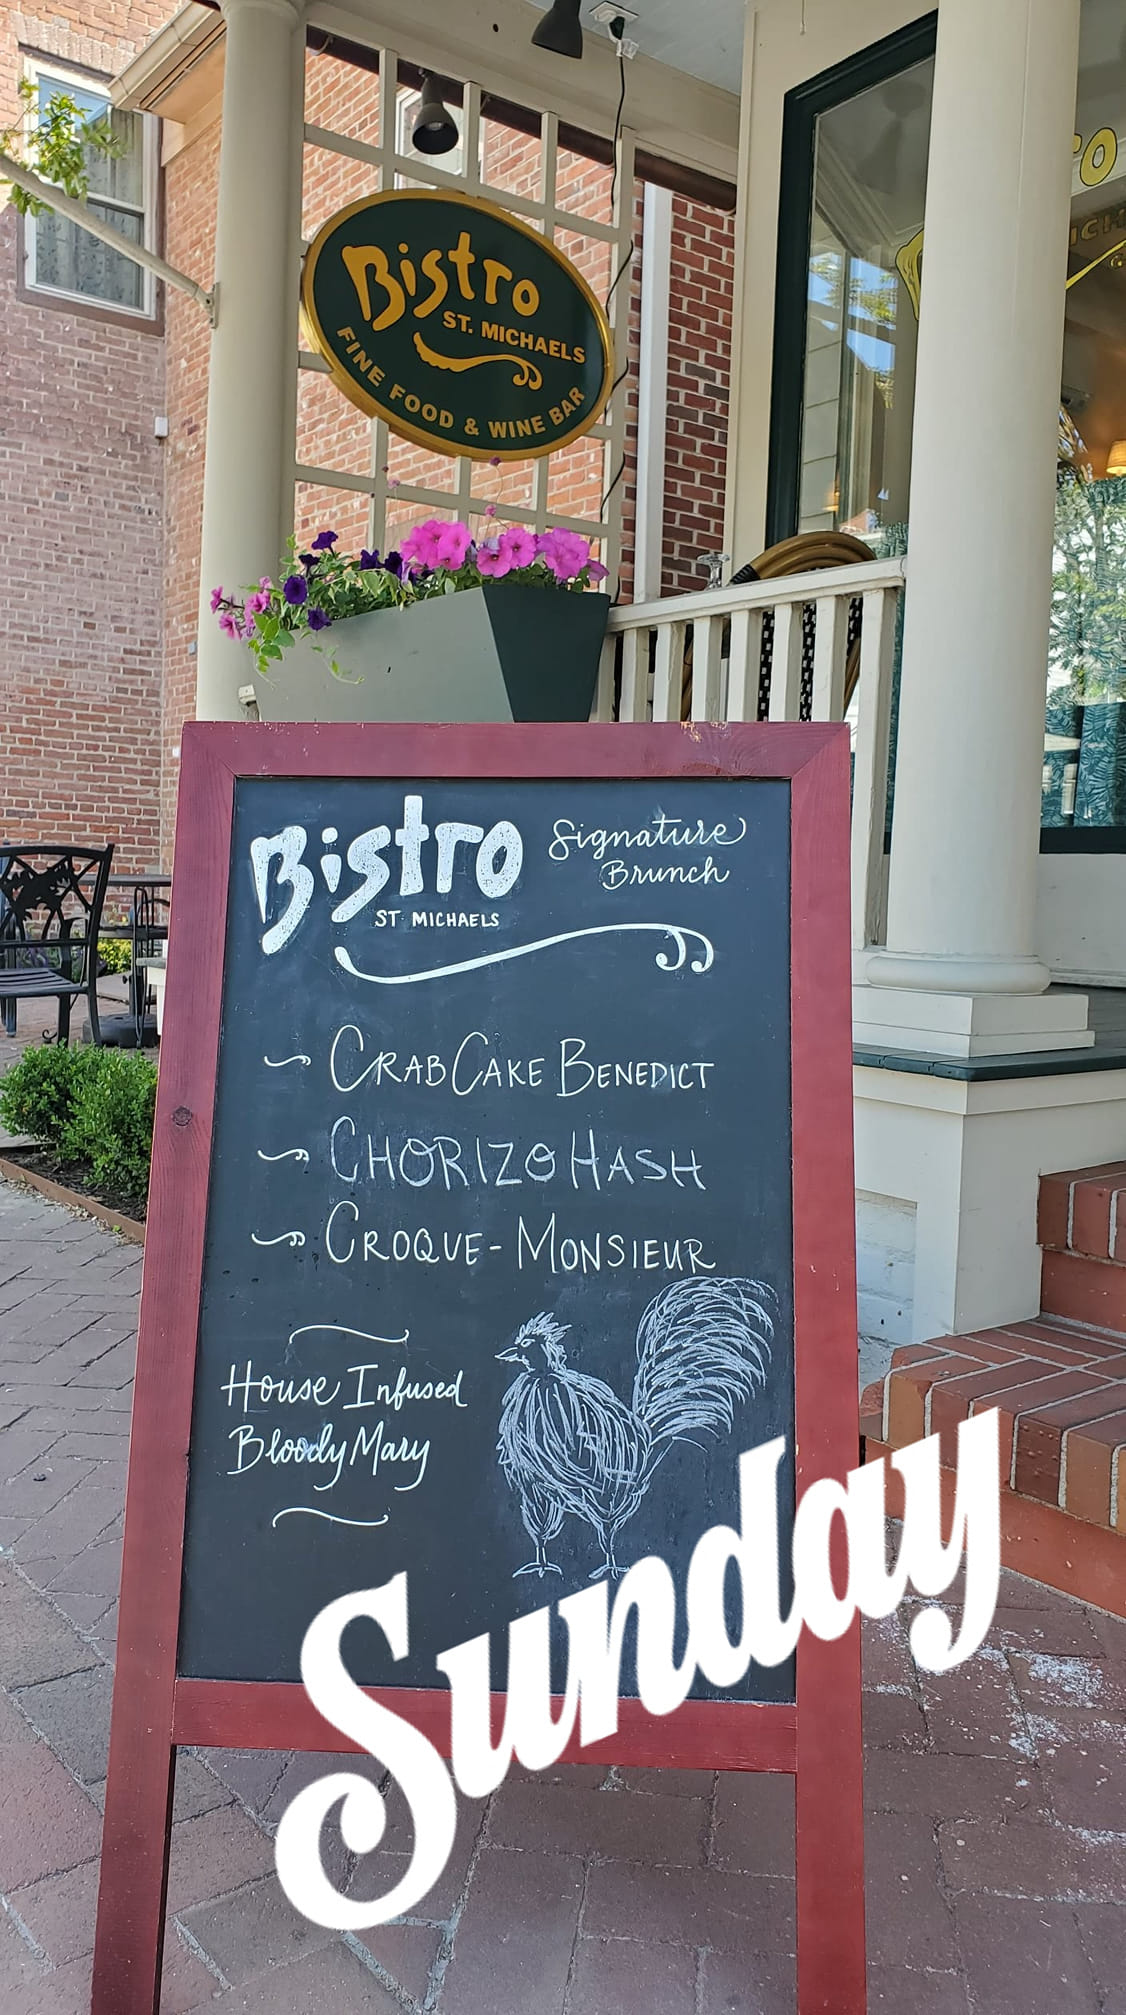 Bistro
ST. MICHAELS
FINE FOOD & WINE BAR
Bistro
ST MICHAELS
Signature
Brunch
CRAB CAKE BENEDICT
CHORIZO HASH
CROQUE-MONSIEUR
House Infused
Bloody Mary
Sunday